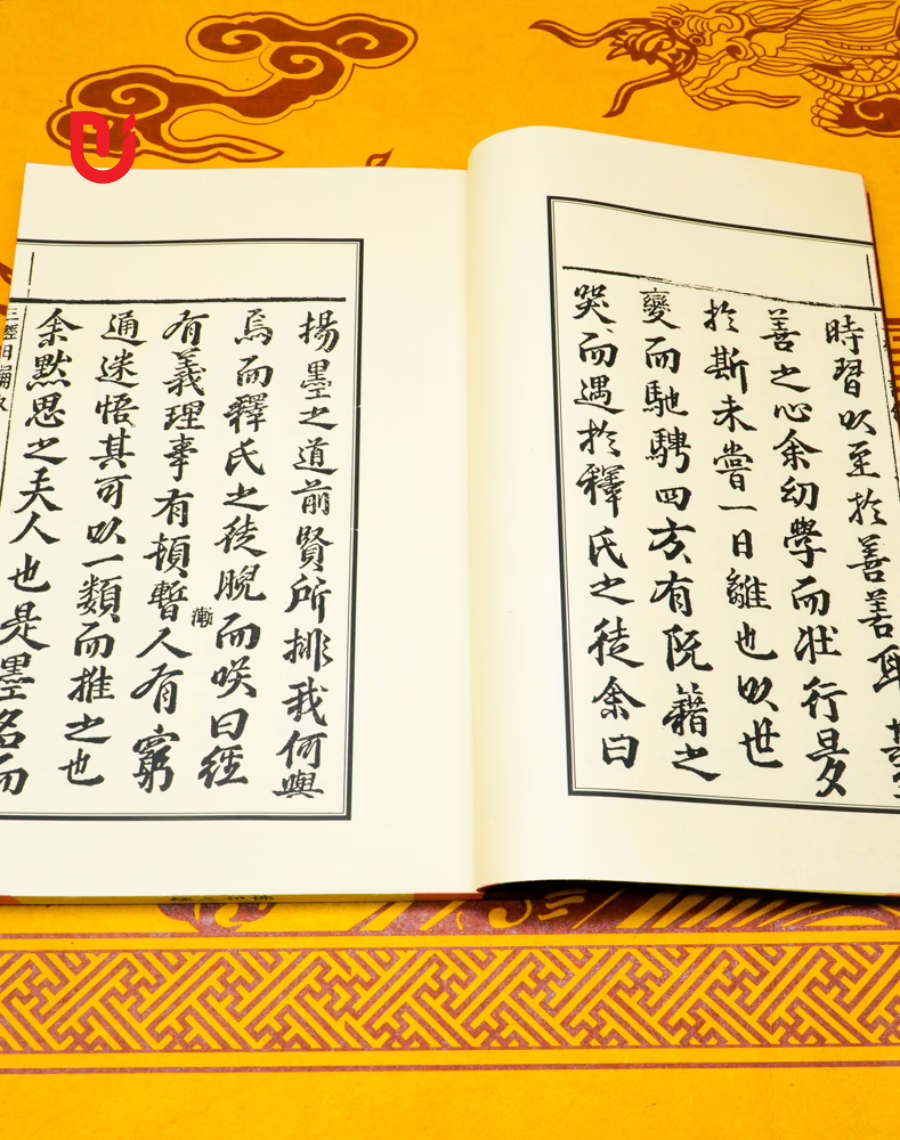 時習以至於善善耳
善之心余幼學而壯行晷
於斯未嘗一日離也以世
變而馳騁四方有阮籍之
哭而遇於釋氏之徒余曰
揚墨之道前賢所排我何與
焉而釋氏之徒睨而唉曰經
有義理事有頓暫人有窮
漸
通迷悟其可以一類而推之也
余默思之夫人也是墨名而